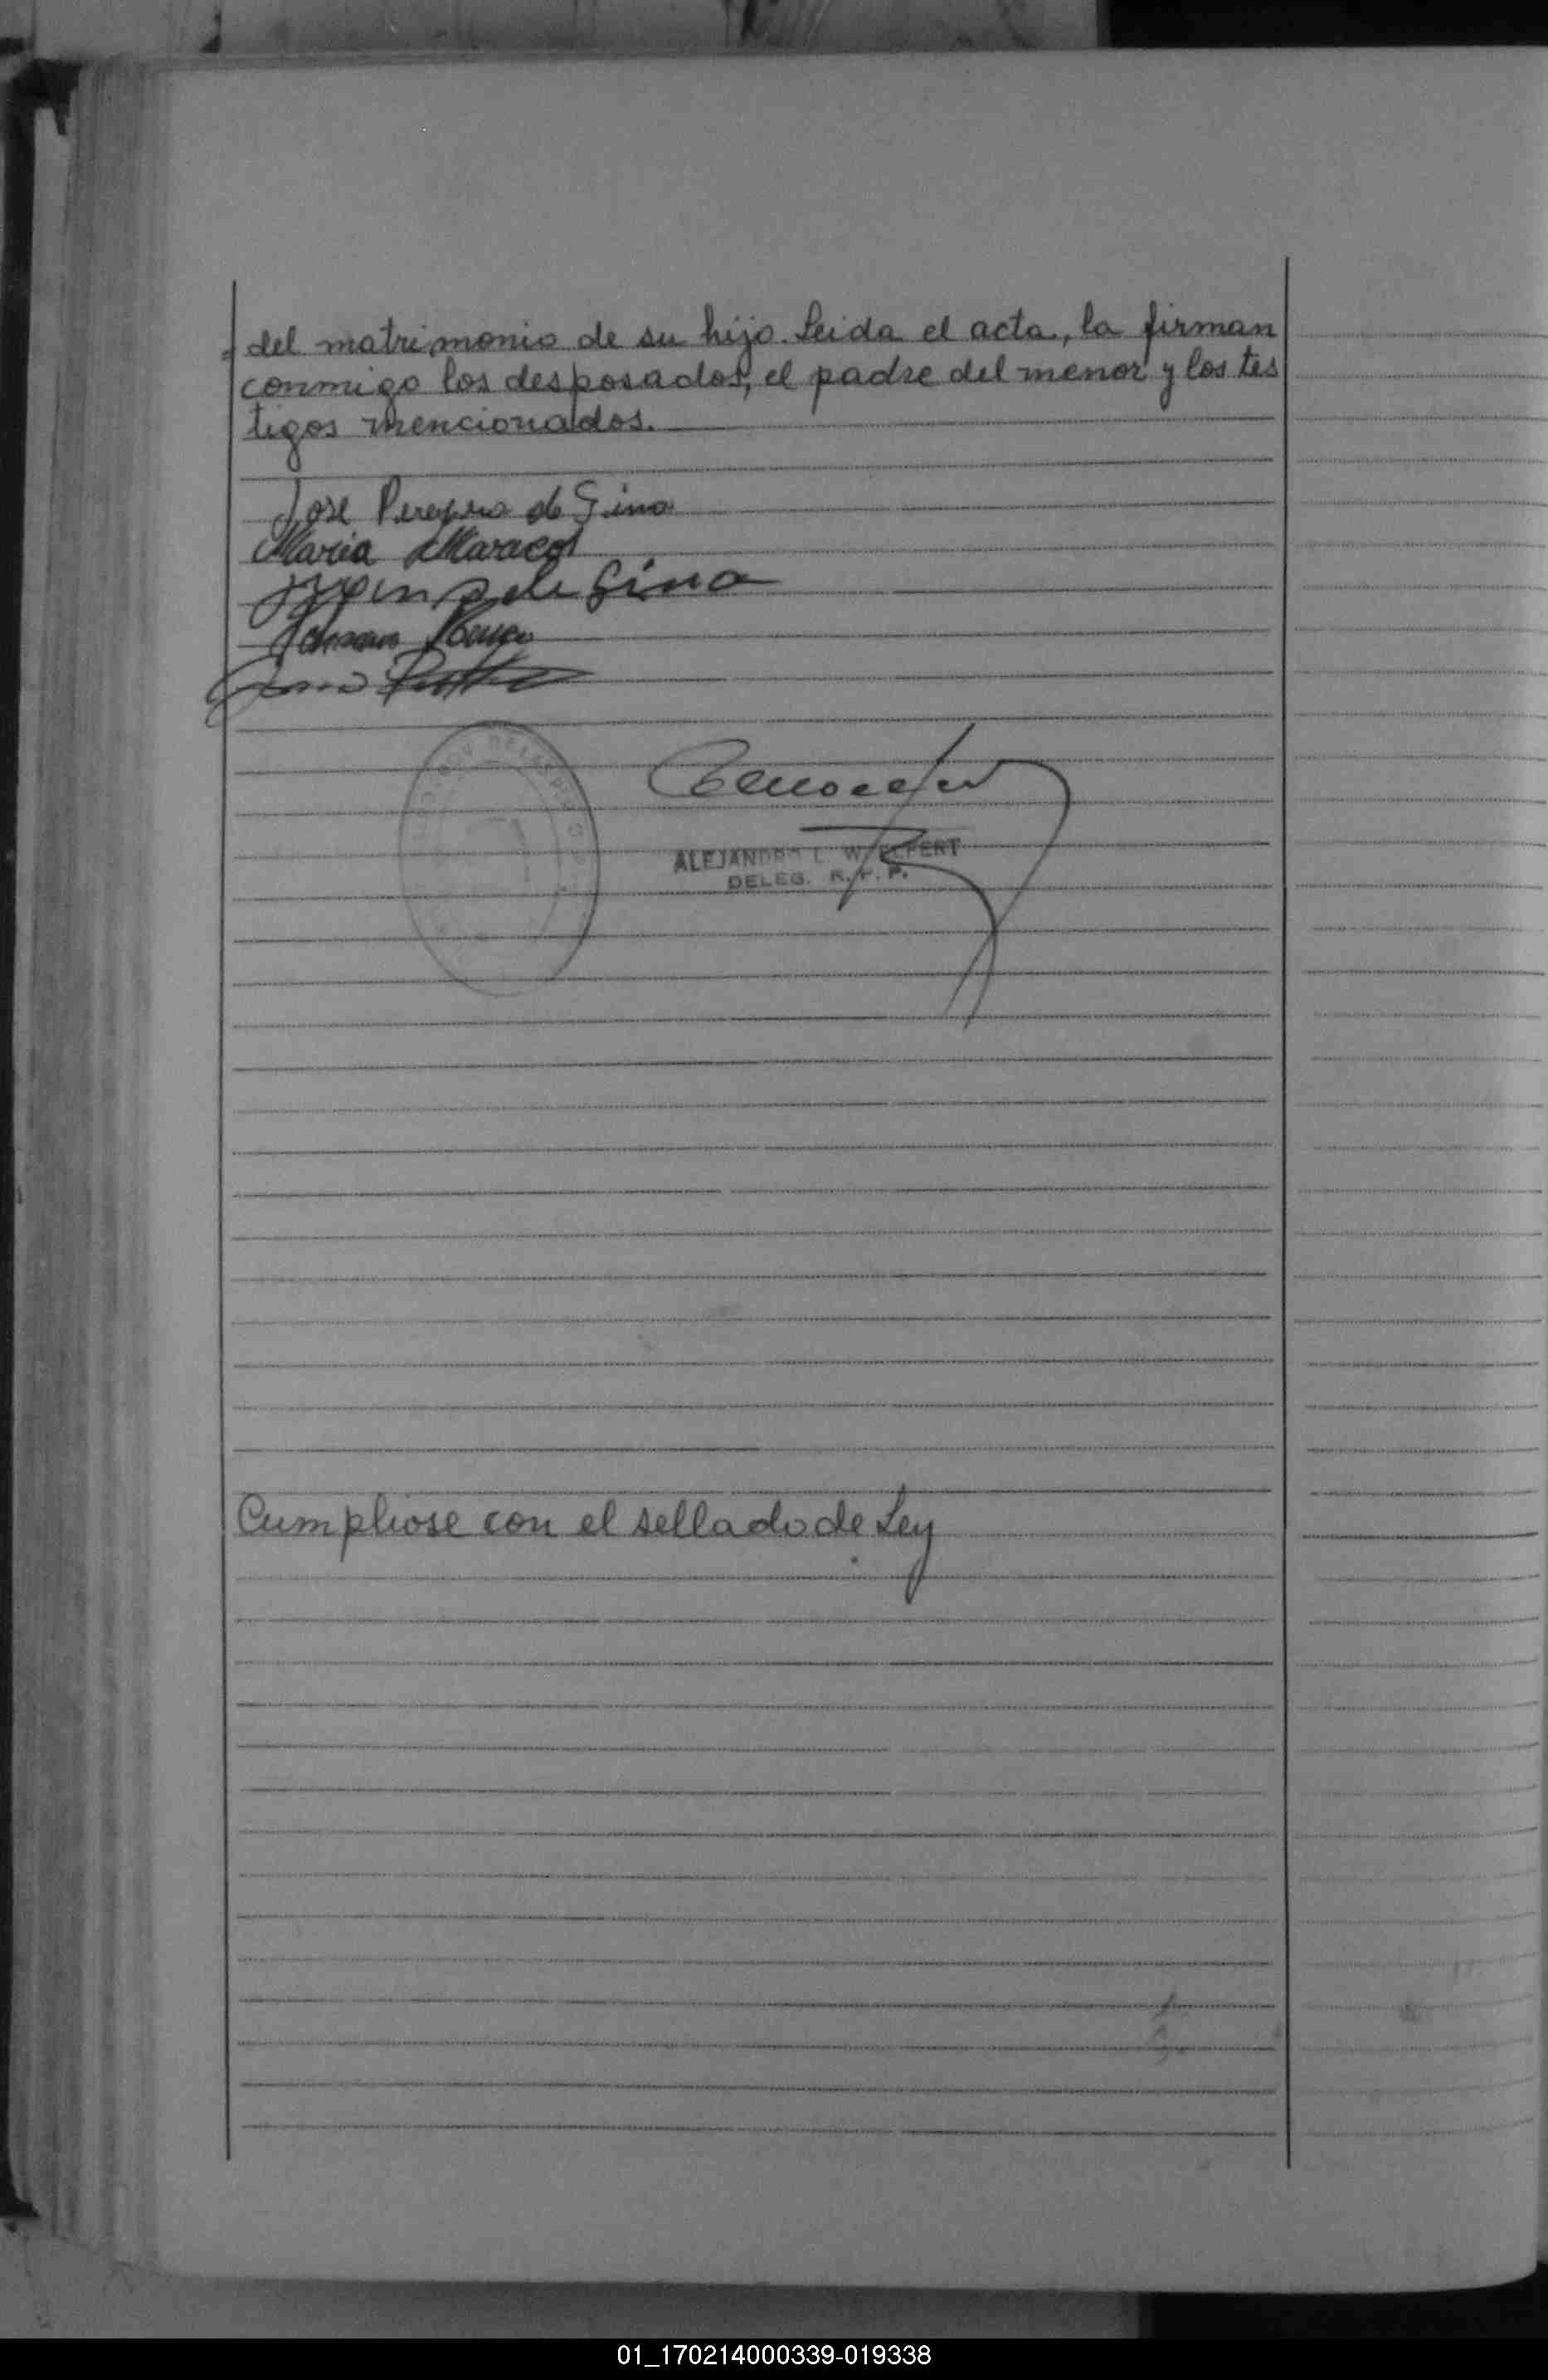 del matrimonio de su hijo. Leida el acta, la firman
conmigo los desposados, el padre del menor y los tes
tigos mencionados.
Jose de Gina
Maria
de Gina
ALEJANDRO L. W
DELEG. R. P. P.
Cumpliose con el sellado de Ley
01_170214000339-019338